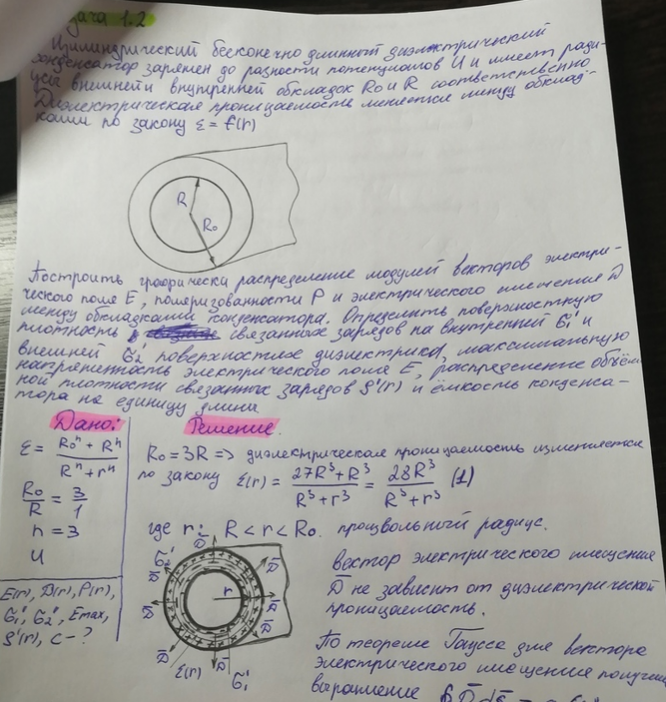 дача 1.2
Цилиндрический бесконечно длинный диэлектрический
конденсатор заряжен до разности потенциалов U и имеет ради-
усы внешней и внутренней обкладок Ro и R соответственно
Диэлектрическая проницаемость меняется между обклад-
ками по закону ε = f(r)
R
Ro
Построить графически распределение модулей векторов электри-
ческого поля E, поляризованности P и электрического смещения D
между обкладками конденсатора. Определить поверхностную
плотность связанных зарядов на внутренней σ₁' и
внешней σ₂' поверхностях диэлектрика, максимальную
напряженность электрического поля E, распределение объём-
ной плотности связанных зарядов ρ'(r) и ёмкость конденса-
тора на единицу длины
Дано:
ε = (Roⁿ + Rⁿ)/(Rⁿ + rⁿ)
Ro/R = 3/1
n = 3
U
E(r), D(r), P(r),
σ₁', σ₂', Emax,
ρ'(r), C - ?
Решение.
Ro = 3R => диэлектрическая проницаемость изменяется
по закону ε(r) = (27R³+R³)/(R³+r³) = 28R³/(R³+r³) (1)
где r: R < r < Ro. произвольный радиус.
σ₂'
D̄
D̄
D̄
D̄
D̄
D̄
D̄
D̄
r
ε(r)
σ₁'
вектор электрического смещения
D̄ не зависит от диэлектрической
проницаемость.
По теореме Гаусса для вектора
электрического смещения получим
выражение